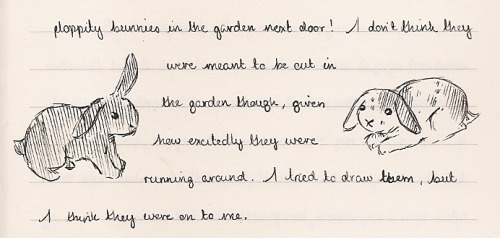 ploppity bunnies in the garden next door! I don't think they
were meant to be out in
the garden though, given
how excitedly they were
running around. I tried to draw them, but
I think they were on to me.